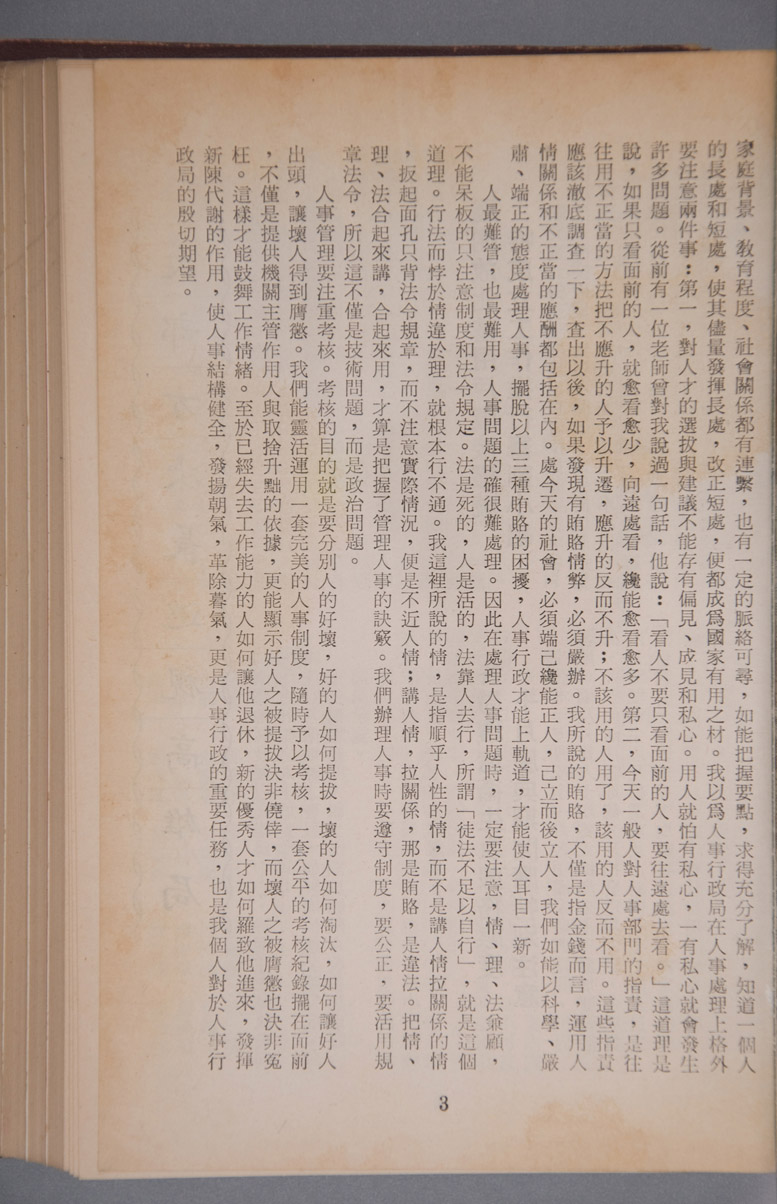 家庭背景、教育程度、社會關係都有連繫，也有一定的脈絡可尋，如能把握要點，求得充分了解，知道一個人
的長處和短處，使其儘量發揮長處，改正短處，便都成爲國家有用之材。我以爲人事行政局在人事處理上格外
要注意兩件事：第一，對人才的選拔與建議不能存有偏見、成見和私心。用人就怕有私心，一有私心就會發生
許多問題。從前有一位老師曾對我說過一句話，他說：「看人不要只看面前的人，要往遠處去看。」這道理是
說，如果只看面前的人，就愈看愈少，向遠處看，纔能愈看愈多。第二，今天一般人對人事部門的指責，是往
往用不正當的方法把不應升的人予以升遷，應升的反而不升；不該用的人用了，該用的人反而不用。這些指責
應該澈底調查一下，查出以後，如果發現有賄賂情弊，必須嚴辦。我所說的賄賂，不僅是指金錢而言，運用人
情關係和不正當的應酬都包括在內。處今天的社會，必須端己纔能正人，己立而後立人，我們如能以科學、嚴
肅、端正的態度處理人事，擺脫以上三種賄賂的困擾，人事行政才能上軌道，才能使人耳目一新。
人最難管，也最難用，人事問題的確很難處理。因此在處理人事問題時，一定要注意，情、理、法兼顧，
不能呆板的只注意制度和法令規定。法是死的，人是活的，法靠人去行，所謂「徒法不足以自行」，就是這個
道理。行法而悖於情違於理，就根本行不通。我這裡所說的情，是指順乎人性的情，而不是講人情拉關係的情
，扳起面孔只背法令規章，而不注意實際情況，便是不近人情；講人情，拉關係，那是賄賂，是違法。把情、
理、法合起來講，合起來用，才算是把握了管理人事的訣竅。我們辦理人事時要遵守制度，要公正，要活用規
章法令，所以這不僅是技術問題，而是政治問題。
人事管理要注重考核。考核的目的就是要分別人的好壞，好的人如何提拔，壞的人如何淘汰，如何讓好人
出頭，讓壞人得到膺懲。我們能靈活運用一套完美的人事制度，隨時予以考核，一套公平的考核紀錄擺在面前
，不僅是提供機關主管作用人與取捨升黜的依據，更能顯示好人之被提拔決非僥倖，而壞人之被膺懲也決非冤
枉。這樣才能鼓舞工作情緒。至於已經失去工作能力的人如何讓他退休，新的優秀人才如何羅致他進來，發揮
新陳代謝的作用，使人事結構健全，發揚朝氣，革除暮氣，更是人事行政的重要任務，也是我個人對於人事行
政局的殷切期望。
3